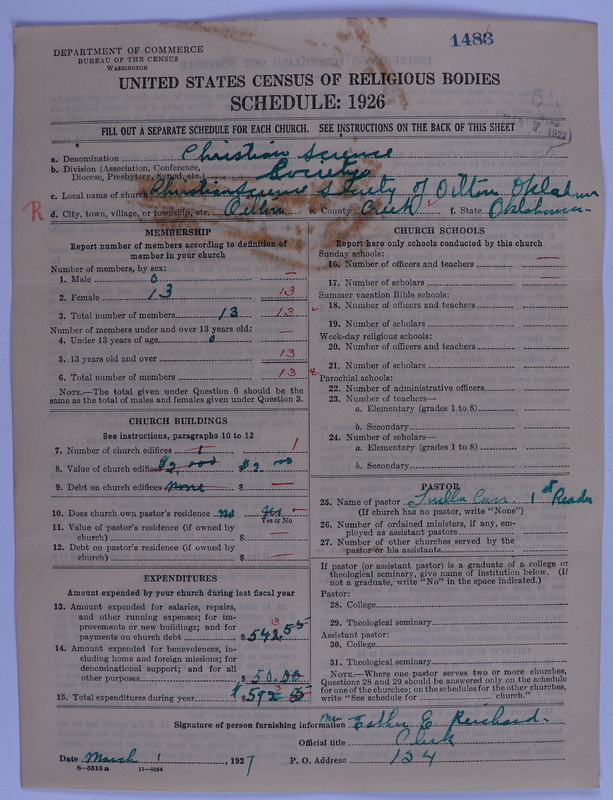 1483
DEPARTMENT OF COMMERCE
BUREAU OF THE CENSUS
WASHINGTON
UNITED STATES CENSUS OF RELIGIOUS BODIES
SCHEDULE: 1926
FILL OUT A SEPARATE SCHEDULE FOR EACH CHURCH. SEE INSTRUCTIONS ON THE BACK OF THIS SHEET
1927
a. Denomination Christian Science
b. Division (Association, Conference, Diocese, Presbytery, Synod, etc.
c. Local name of church Christian Science Society of Oilton Oklahoma
R d. City, town, village, or township, etc. Oilton e. County Creek f. State Oklahoma
MEMBERSHIP
Report number of members according to definition of member in your church
Number of members, by sex:
1. Male 0 —
2. Female 13 13
3. Total number of members 13 13
Number of members under and over 13 years old: —
4. Under 13 years of age 0
5. 13 years old and over 13
6. Total number of members 13
NOTE.—The total given under Question 6 should be the same as the total of males and females given under Question 3.
CHURCH BUILDINGS
See instructions, paragraphs 10 to 12
7. Number of church edifices 1 1
8. Value of church edifices $2,000 $2.00
9. Debt on church edifices None $ —
10. Does church own pastor's residence no Yes —
Yes or No
11. Value of pastor's residence (if owned by church) $ —
12. Debt on pastor's residence (if owned by church) $ —
EXPENDITURES
Amount expended by your church during last fiscal year
13. Amount expended for salaries, repairs, and other running expenses; for improvements or new buildings; and for payments on church debt $ 542.55
3
14. Amount expended for benevolences, including home and foreign missions; for denominational support; and for all other purposes $ 50.00
15. Total expenditures during year $ 592 3 55
CHURCH SCHOOLS
Report here only schools conducted by this church
Sunday schools:
16. Number of officers and teachers —
17. Number of scholars —
Summer vacation Bible schools:
18. Number of officers and teachers
19. Number of scholars
Week-day religious schools:
20. Number of officers and teachers
21. Number of scholars
Parochial schools:
22. Number of administrative officers
23. Number of teachers—
a. Elementary (grades 1 to 8)
b. Secondary
24. Number of scholars—
a. Elementary (grades 1 to 8)
b. Secondary
PASTOR
25. Name of pastor Luella Carr. 1st Reader
(If church has no pastor, write "None")
26. Number of ordained ministers, if any, employed as assistant pastors
27. Number of other churches served by the pastor or his assistants
If pastor (or assistant pastor) is a graduate of a college or theological seminary, give name of institution below. (If not a graduate, write "No" in the space indicated.)
Pastor:
28. College
29. Theological seminary
Assistant pastor:
30. College
31. Theological seminary
NOTE.—Where one pastor serves two or more churches, Questions 28 and 29 should be answered only on the schedule for one of the churches; on the schedules for the other churches, write "See schedule for church."
Signature of person furnishing information Mrs Esther E Reichard.
Official title Clerk
Date March 1, 1927 P. O. Address 124
8—5518a 11—9034